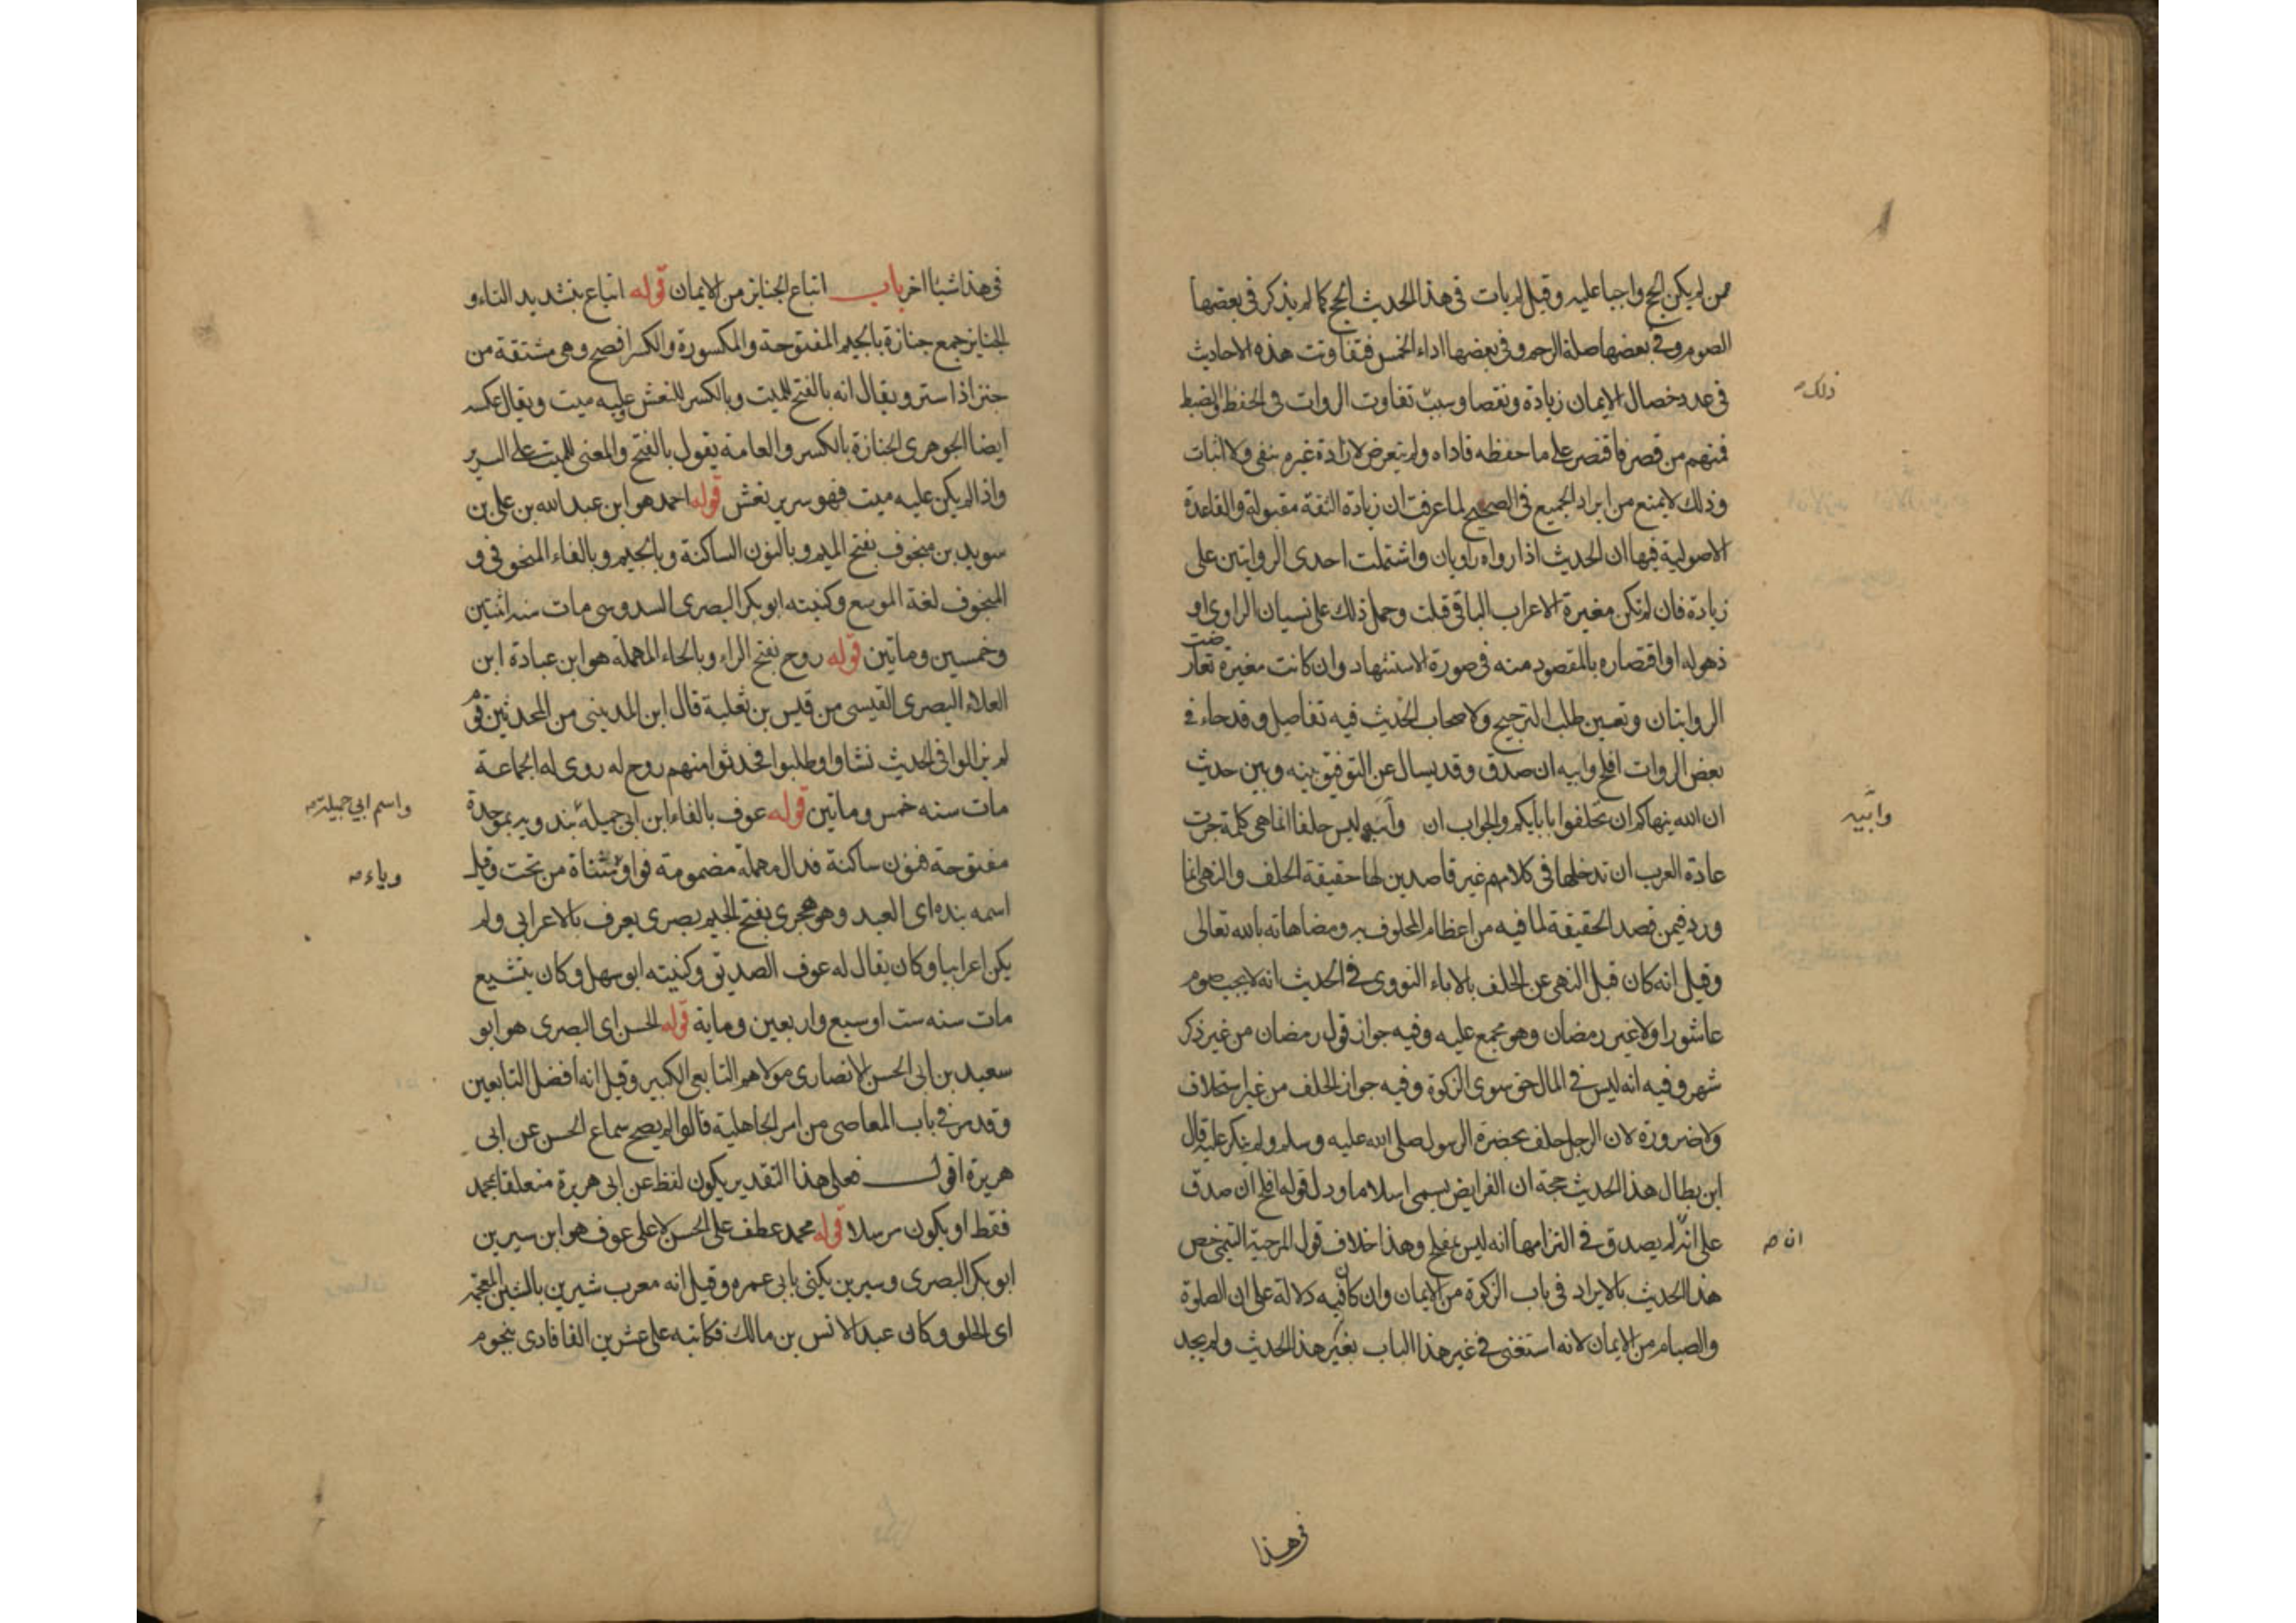 ممن لم يكن الحج واجبا عليه وقيل لم يات في هذا الحديث الحج كما لم يذكر في بعضها
الصوم وفي بعضها صلة الرحم وفي بعضها اداء الخمس فتفاوتت هذه الاحاديث
في عدد خصال الايمان زيادة ونقصا وسبب تفاوت الروات في الحفظ والضبط
ذلك صح
فمنهم من قصر فاقتصر على ما حفظه فاداه ولم يتعرض لازادة غيره بنفي ولا اثبات
وذلك لا يمنع من ايراد الجميع في الصحيح لما عرفت ان زيادة الثقة مقبولة والقاعدة
الاصولية فيها ان الحديث اذا رواه راويان واشتملت احدى الروايتين على
زيادة فان لم تكن مغيرة لاعراب الباقي قبلت وحمل ذلك على نسيان الراوي او
ذهوله او اقتصاره بالمقصود منه في صورة الاستشهاد وان كانت مغيرة تعارضت
الروايتان وتعين طلب الترجيح ولاصحاب الحديث فيه تفاصيل وقد جاء في
بعض الروات افلح وابيه ان صدق وقد يسال عن التوفيق بينه وبين حديث
ان الله ينهاكم ان تحلفوا بابايكم والجواب ان وابيه ليس حلفا انما هي كلمة جرت
وابيه
عادة العرب ان تدخلها في كلامهم غير قاصدين لها حقيقة الحلف والنهي انما
ورد فيمن قصد الحقيقة لما فيه من اعظام المحلوف به ومضاهاته بالله تعالى
وقيل انه كان قبل النهي عن الحلف بالاباء النووي في الحديث انه لا يجب صوم
عاشورا ولا غير رمضان وهو مجمع عليه وفيه جواز قول رمضان من غير ذكر
شهر وفيه انه ليس في المال حق سوى الزكوة وفيه جواز الحلف من غير استحلاف
ولا ضرورة لان الرجل حلف بحضرة الرسول صلى الله عليه وسلم ولم ينكر عليه قال
ابن بطال هذا الحديث حجة ان الفرايض يسمى اسلاما ودل قوله افلح ان صدق
على انه لم يصدق في التزامها انه ليس بمفلح وهذا خلاف قول المرجية التيمي خص
ان صح
هذا الحديث بالايراد في باب الزكوة من الايمان وان كان فيه دلالة على ان الصلوة
والصيام من الايمان لانه استغنى في غير هذا الباب بغير هذا الحديث ولم يجد
في هذا
في هذا شيئا اخر باب اتباع الجنايز من الايمان قوله اتباع بتشديد التاء و
الجنايز جمع جنازة بالجيم المفتوحة والمكسورة والكسر افصح وهي مشتقة من
جنز اذا ستر ويقال انه بالفتح للميت وبالكسر للنعش عليه ميت ويقال عكسه
ايضا الجوهري الجنازة بالكسر والعامة يقول بالفتح والمعنى للميت على السرير
واذا لم يكن عليه ميت فهو سرير نعش قوله احمد هو ابن عبد الله بن علي بن
سويد بن منجوف بفتح الميم وبالنون الساكنة وبالجيم وبالفاء المنجوفي و
المنجوف لغة الموسع وكنيته ابو بكر البصري السدوسي مات سنه اثنتين
وخمسين وماتين قوله روح بفتح الراء وبالحاء المهملة هو ابن عبادة ابن
العلاء البصري القيسي من قيس بن ثعلبة قال ابن المديني من المحدثين قوم
لم يزالوا في الحديث نشاوا وطلبوا فحدثوا منهم روح له روى له الجماعة
مات سنه خمس وماتين قوله عوف بالفاء ابن ابي جميلة بندويه بموحدة
واسم ابي جميلة صح
مفتوحة فنون ساكنة فدال مهملة مضمومة فواو مثناة من تحت وقيل
وياء صح
اسمه بنده اي العبد وهو هجري بفتح الجيم بصري يعرف بالاعرابي ولم
يكن اعرابيا وكان يقال له عوف الصديق وكنيته ابو سهل وكان يتشيع
مات سنه ست او سبع واربعين وماية قوله الحسن اي البصري هو ابو
سعيد بن ابي الحسن الانصاري مولاهم التابعي الكبير وقيل انه افضل التابعين
وقد مر في باب المعاصي من امر الجاهلية قالوا لم يصح سماع الحسن عن ابي
هريرة اقول فعلى هذا التقدير يكون لفظ عن ابي هريرة متعلقا بمحمد
فقط او يكون مرسلا قوله محمد عطف على الحسن لا على عوف هو ابن سيرين
ابو بكر البصري وسيرين يكنى بابي عمره وقيل انه معرب شيرين بالشين المعجمه
اي الحلو وكان عبدا لانس بن مالك فكاتبه على عشرين الفا فادى بنجوم